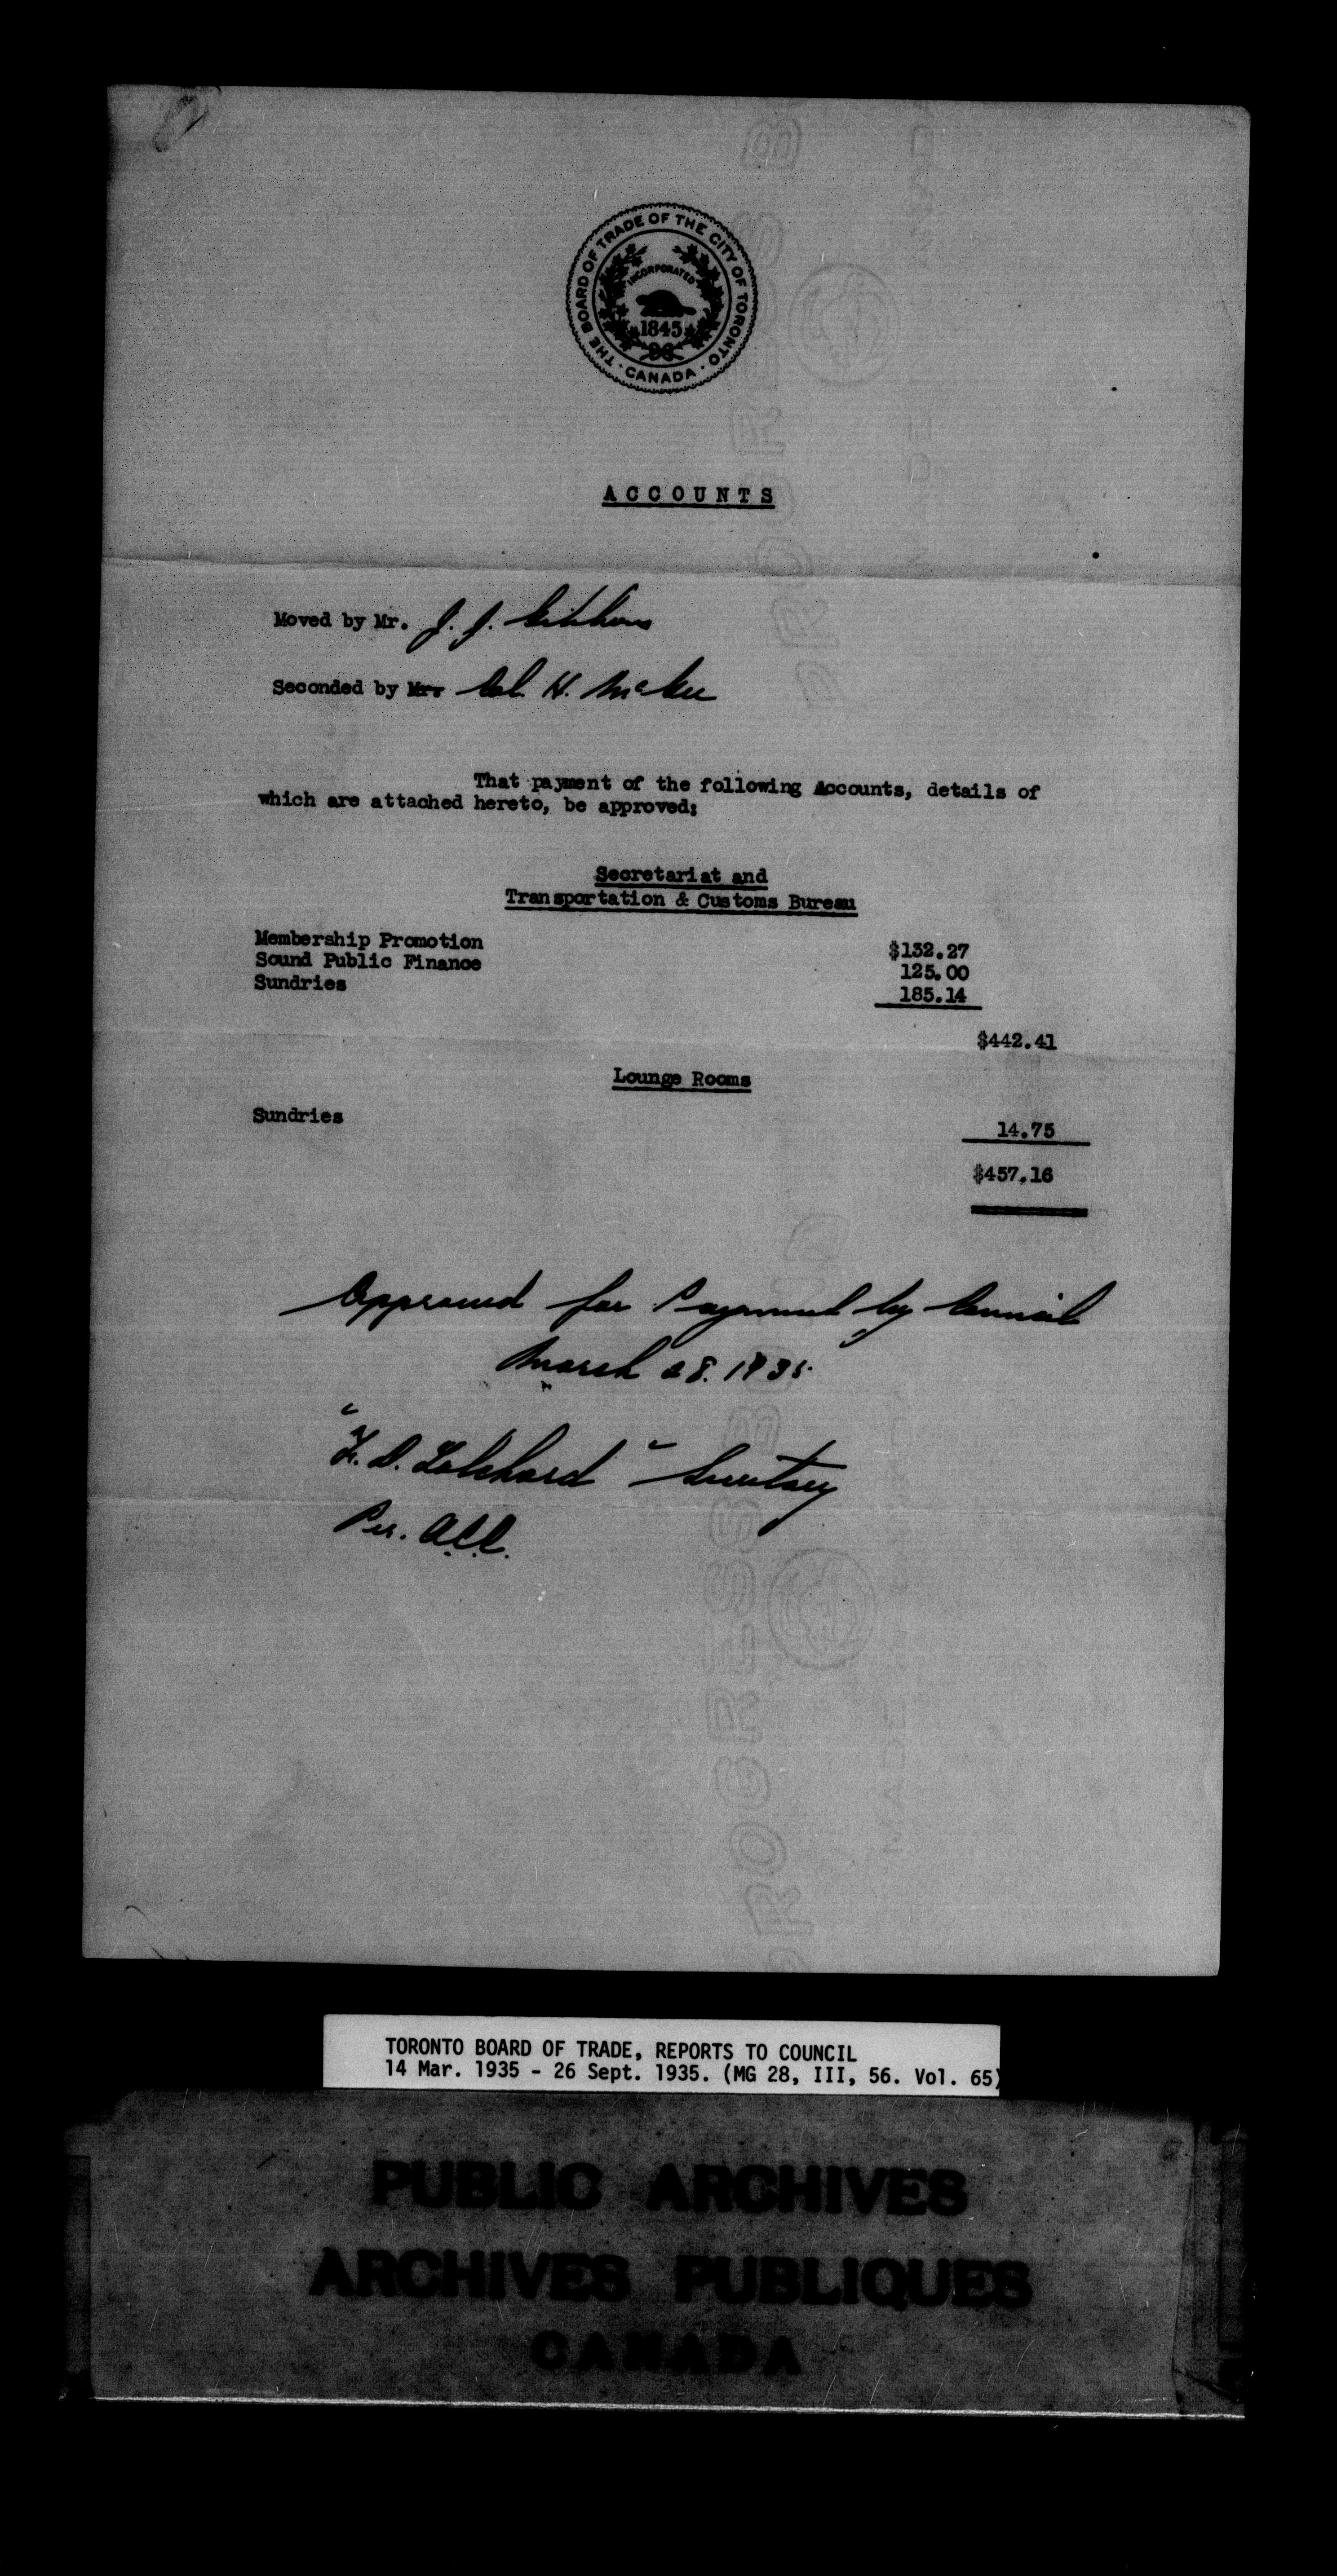 THE BOARD OF TRADE OF THE CITY OF TORONTO
· CANADA ·
INCORPORATED
1845
ACCOUNTS
Moved by Mr. J. J. Gibbons
Seconded by Mr. Col. H. McKee
That payment of the following Accounts, details of
which are attached hereto, be approved:
Secretariat and
Transportation & Customs Bureau
Membership Promotion $132.27
Sound Public Finance 125.00
Sundries 185.14
$442.41
Lounge Rooms
Sundries 14.75
$457.16
Approved for Payment by Council
March 28. 1935.
"F. D. Tolchard" Secretary
Per.
TORONTO BOARD OF TRADE, REPORTS TO COUNCIL
14 Mar. 1935 - 26 Sept. 1935. (MG 28, III, 56. Vol. 65)
PUBLIC ARCHIVES
ARCHIVES PUBLIQUES
CANADA